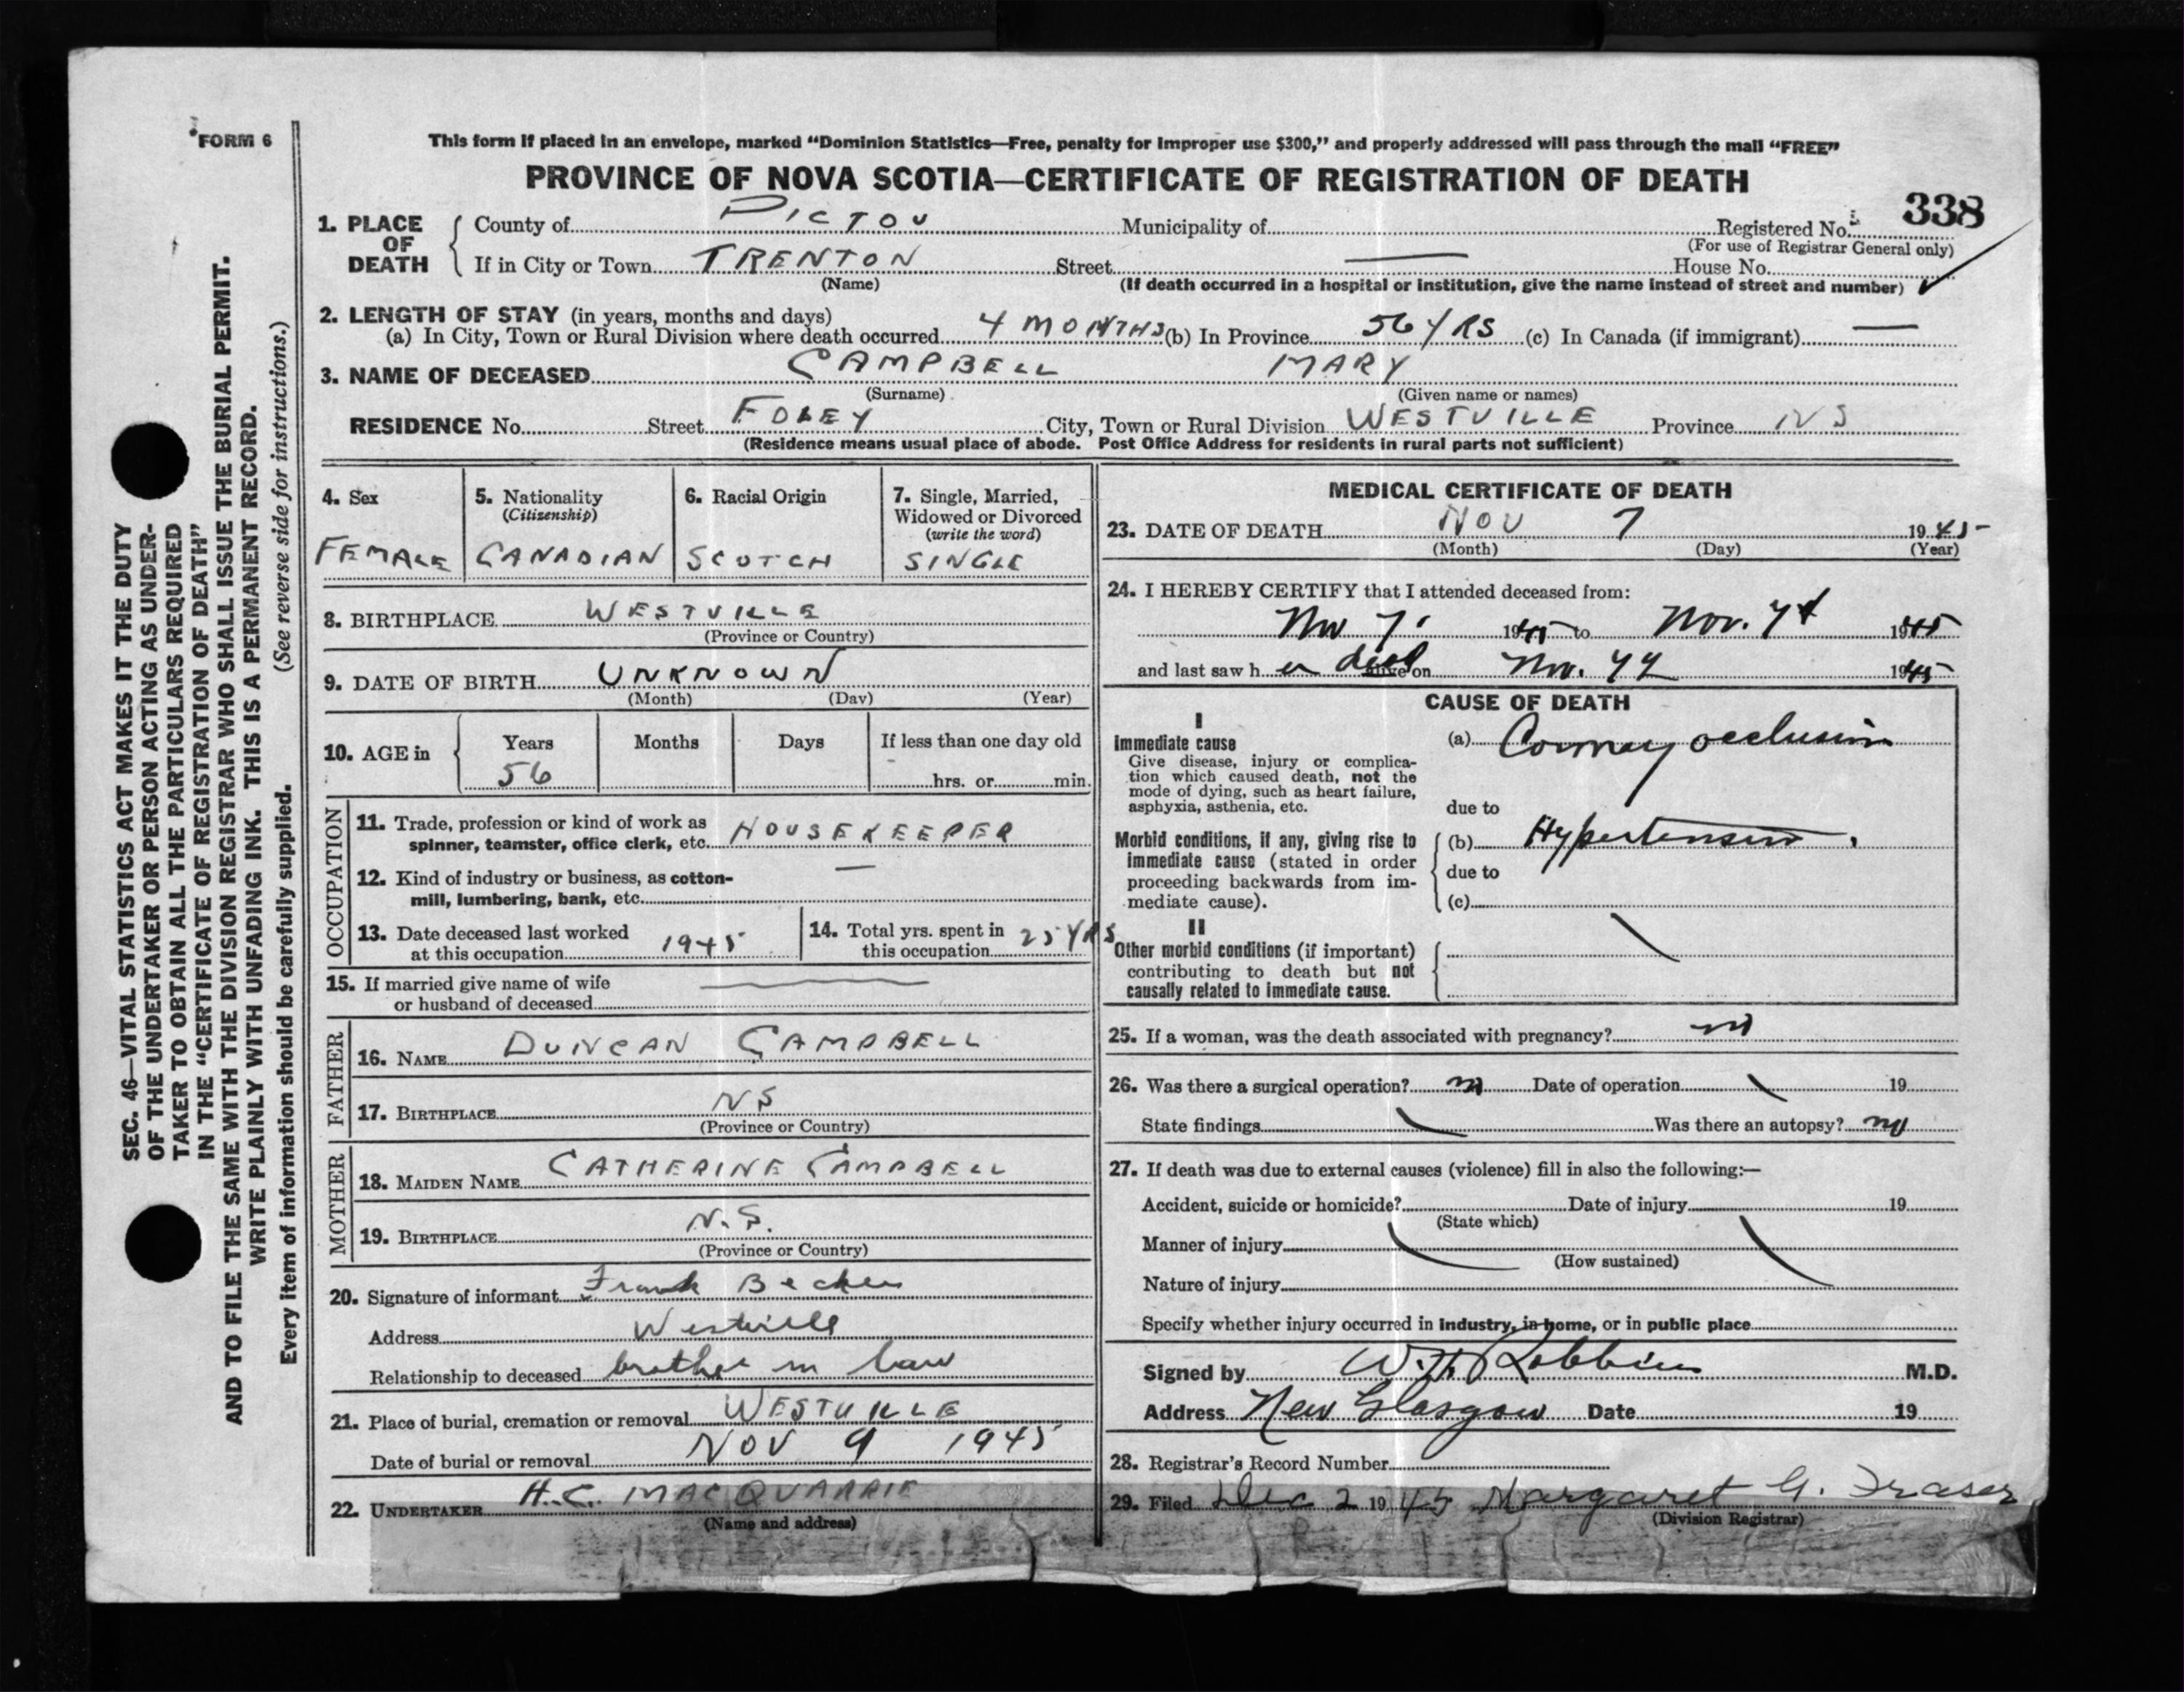 FORM 6
This form if placed in an envelope, marked “Dominion Statistics—Free, penalty for improper use $300,” and properly addressed will pass through the mail “FREE”
PROVINCE OF NOVA SCOTIA—CERTIFICATE OF REGISTRATION OF DEATH
338
1. PLACE OF DEATH { County of PICTOU Municipality of Registered No.
(For use of Registrar General only)
If in City or Town TRENTON Street — House No.
(Name) (If death occurred in a hospital or institution, give the name instead of street and number)
2. LENGTH OF STAY (in years, months and days)
(a) In City, Town or Rural Division where death occurred 4 MONTHS (b) In Province 56 YRS (c) In Canada (if immigrant) —
3. NAME OF DECEASED CAMPBELL MARY
(Surname) (Given name or names)
RESIDENCE No. Street FOLEY City, Town or Rural Division WESTVILLE Province NS
(Residence means usual place of abode. Post Office Address for residents in rural parts not sufficient)
4. Sex
FEMALE
5. Nationality
(Citizenship)
CANADIAN
6. Racial Origin
SCOTCH
7. Single, Married,
Widowed or Divorced
(write the word)
SINGLE
8. BIRTHPLACE WESTVILLE
(Province or Country)
9. DATE OF BIRTH UNKNOWN
(Month) (Day) (Year)
10. AGE in { Years Months Days If less than one day old
56 hrs. or min.
OCCUPATION
11. Trade, profession or kind of work as
spinner, teamster, office clerk, etc. HOUSEKEEPER
12. Kind of industry or business, as cotton-
mill, lumbering, bank, etc. —
13. Date deceased last worked
at this occupation 1945
14. Total yrs. spent in
this occupation 25 YRS
15. If married give name of wife
or husband of deceased —
FATHER
16. NAME DUNCAN CAMPBELL
17. BIRTHPLACE NS
(Province or Country)
MOTHER
18. MAIDEN NAME CATHERINE CAMPBELL
19. BIRTHPLACE N.S.
(Province or Country)
20. Signature of informant Frank
Address Westville
Relationship to deceased brother in law
21. Place of burial, cremation or removal WESTVILLE
Date of burial or removal NOV 9 1945
22. UNDERTAKER H.C. MACQUARRIE
(Name and address)
MEDICAL CERTIFICATE OF DEATH
23. DATE OF DEATH NOV 7 1945
(Month) (Day) (Year)
24. I HEREBY CERTIFY that I attended deceased from:
Nov 7 1945 to Nov. 7 1945
and last saw her dead alive on Nov. 7 1945
CAUSE OF DEATH
I
Immediate cause
Give disease, injury or complica-
tion which caused death, not the
mode of dying, such as heart failure,
asphyxia, asthenia, etc.
(a) Coronary occlusion
due to
Morbid conditions, if any, giving rise to
immediate cause (stated in order
proceeding backwards from im-
mediate cause).
(b) Hypertension
due to
(c)
II
Other morbid conditions (if important)
contributing to death but not
causally related to immediate cause.
25. If a woman, was the death associated with pregnancy? no
26. Was there a surgical operation? no Date of operation 19
State findings Was there an autopsy? no
27. If death was due to external causes (violence) fill in also the following:—
Accident, suicide or homicide? Date of injury 19
(State which)
Manner of injury
(How sustained)
Nature of injury
Specify whether injury occurred in industry, in home, or in public place
Signed by W. H. Robbins M.D.
Address New Glasgow Date 19
28. Registrar's Record Number
29. Filed Dec 2 1945 Margaret G. Fraser
(Division Registrar)
SEC. 46—VITAL STATISTICS ACT MAKES IT THE DUTY
OF THE UNDERTAKER OR PERSON ACTING AS UNDER-
TAKER TO OBTAIN ALL THE PARTICULARS REQUIRED
IN THE “CERTIFICATE OF REGISTRATION OF DEATH”
AND TO FILE THE SAME WITH THE DIVISION REGISTRAR WHO SHALL ISSUE THE BURIAL PERMIT.
WRITE PLAINLY WITH UNFADING INK. THIS IS A PERMANENT RECORD.
Every item of information should be carefully supplied. (See reverse side for instructions.)